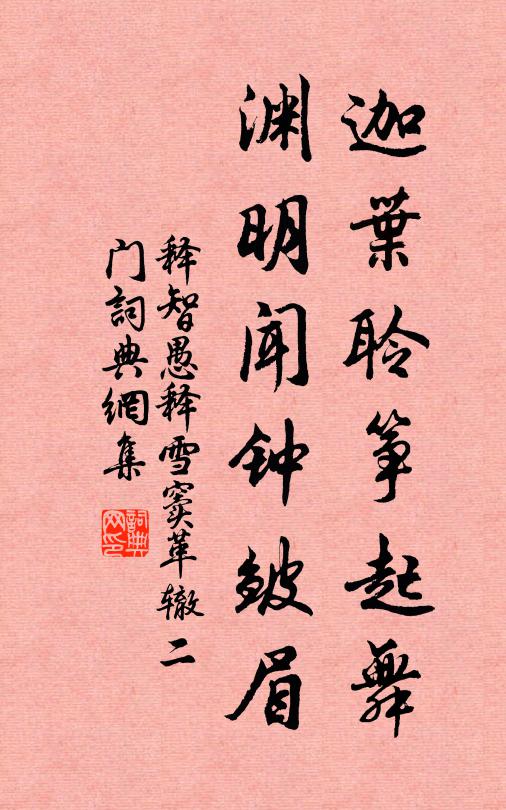 迦葉聆筝起舞
渊明闻钟皱眉
释智愚释雪窦革辙二
门詞典網集
詞典网印